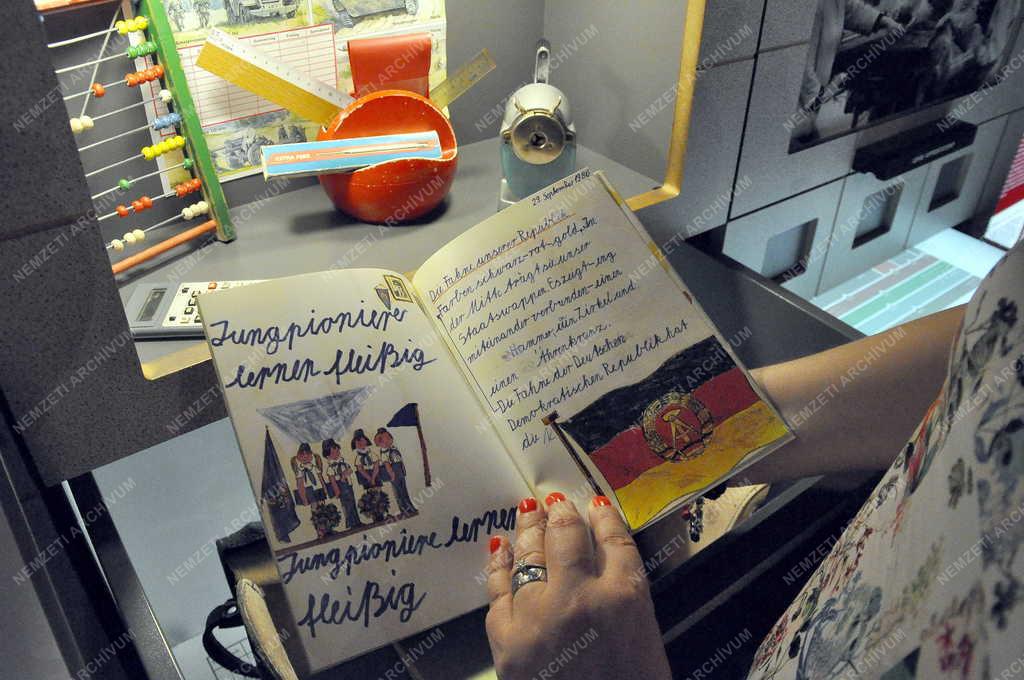 Jungpioniere
lernen fleißig
Jungpioniere lernen
fleißig
29. September 1986
Die Fahne unserer Republik
Farben schwarz-rot-gold. Im
der Mitte trägt sie unser
Staatswappen. Es zeigt eng
miteinander verbunden - einen
Hammer, ein Zirkel und
einen Ährenkranz.
Die Fahne der Deutschen
Demokratischen Republik hat
die
EXTRA FEIN
NEMZETI ARCHÍVUM